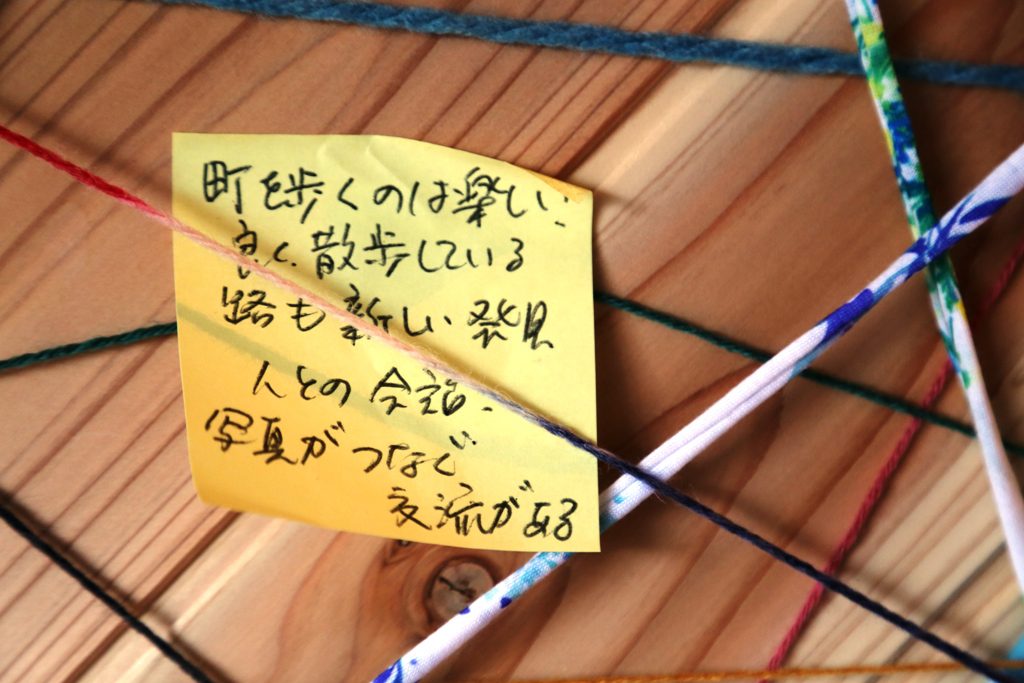 町を歩くのは楽しい.
良く散歩している
路も新しい発見
人との会話.
写真がつなぐ
交流がある